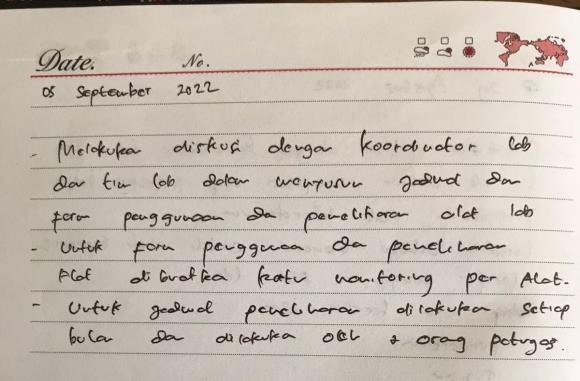 Date. No.
05 September 2022
- Melakukan diskusi dengan koordinator lab
dan tim lab dalam menyusun jadwal dan
form penggunaan dan pemeliharan alat lab
- Untuk form penggunaan dan pemeliharan
Alat di buatkan kartu monitoring per Alat.
- Untuk jadwal pemeliharan dilakukan setiap
bulan dan dilakukan oleh orang petugas.